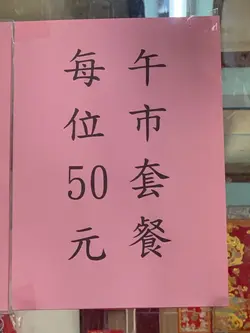 午市套餐
每位50元